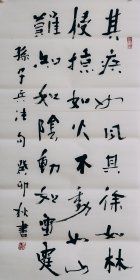 其疾如風其徐如林
侵掠如火不動如山
難知如陰動如雷霆
孫子兵法句 癸卯秋書